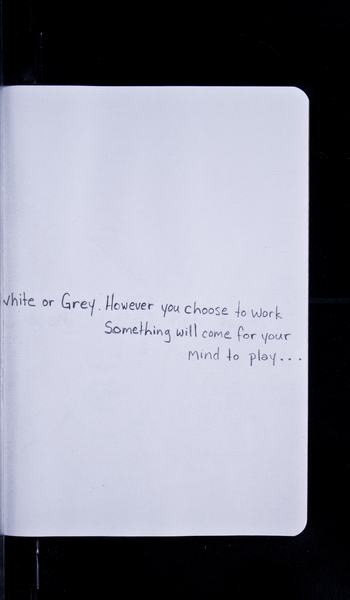 white or Grey. However you choose to work
Something will come for your
Mind to play...